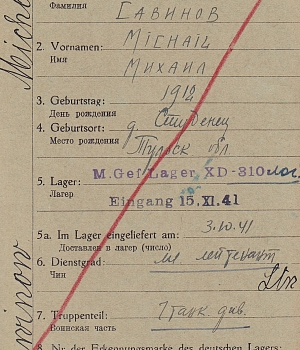 Фамилия
САВИНОВ
2. Vornamen: MICHAIL
Имя
МИХАИЛ
3. Geburtstag: 1912
День рождения
4. Geburtsort: д. Студенец
Место рождения
Тульск обл.
5. Lager: M. Gef Lager XD-310
Лагер
Eingang 15. XI. 41
5a. Im Lager eingeliefert am: 3.10.41
Доставлен в лагер (число)
6. Dienstgrad: мл лейтенант
Чин
7. Truppenteil: 7 танк. див.
Воинская часть
8. Nr. der Erkennungsmarke des deutschen Lagers: